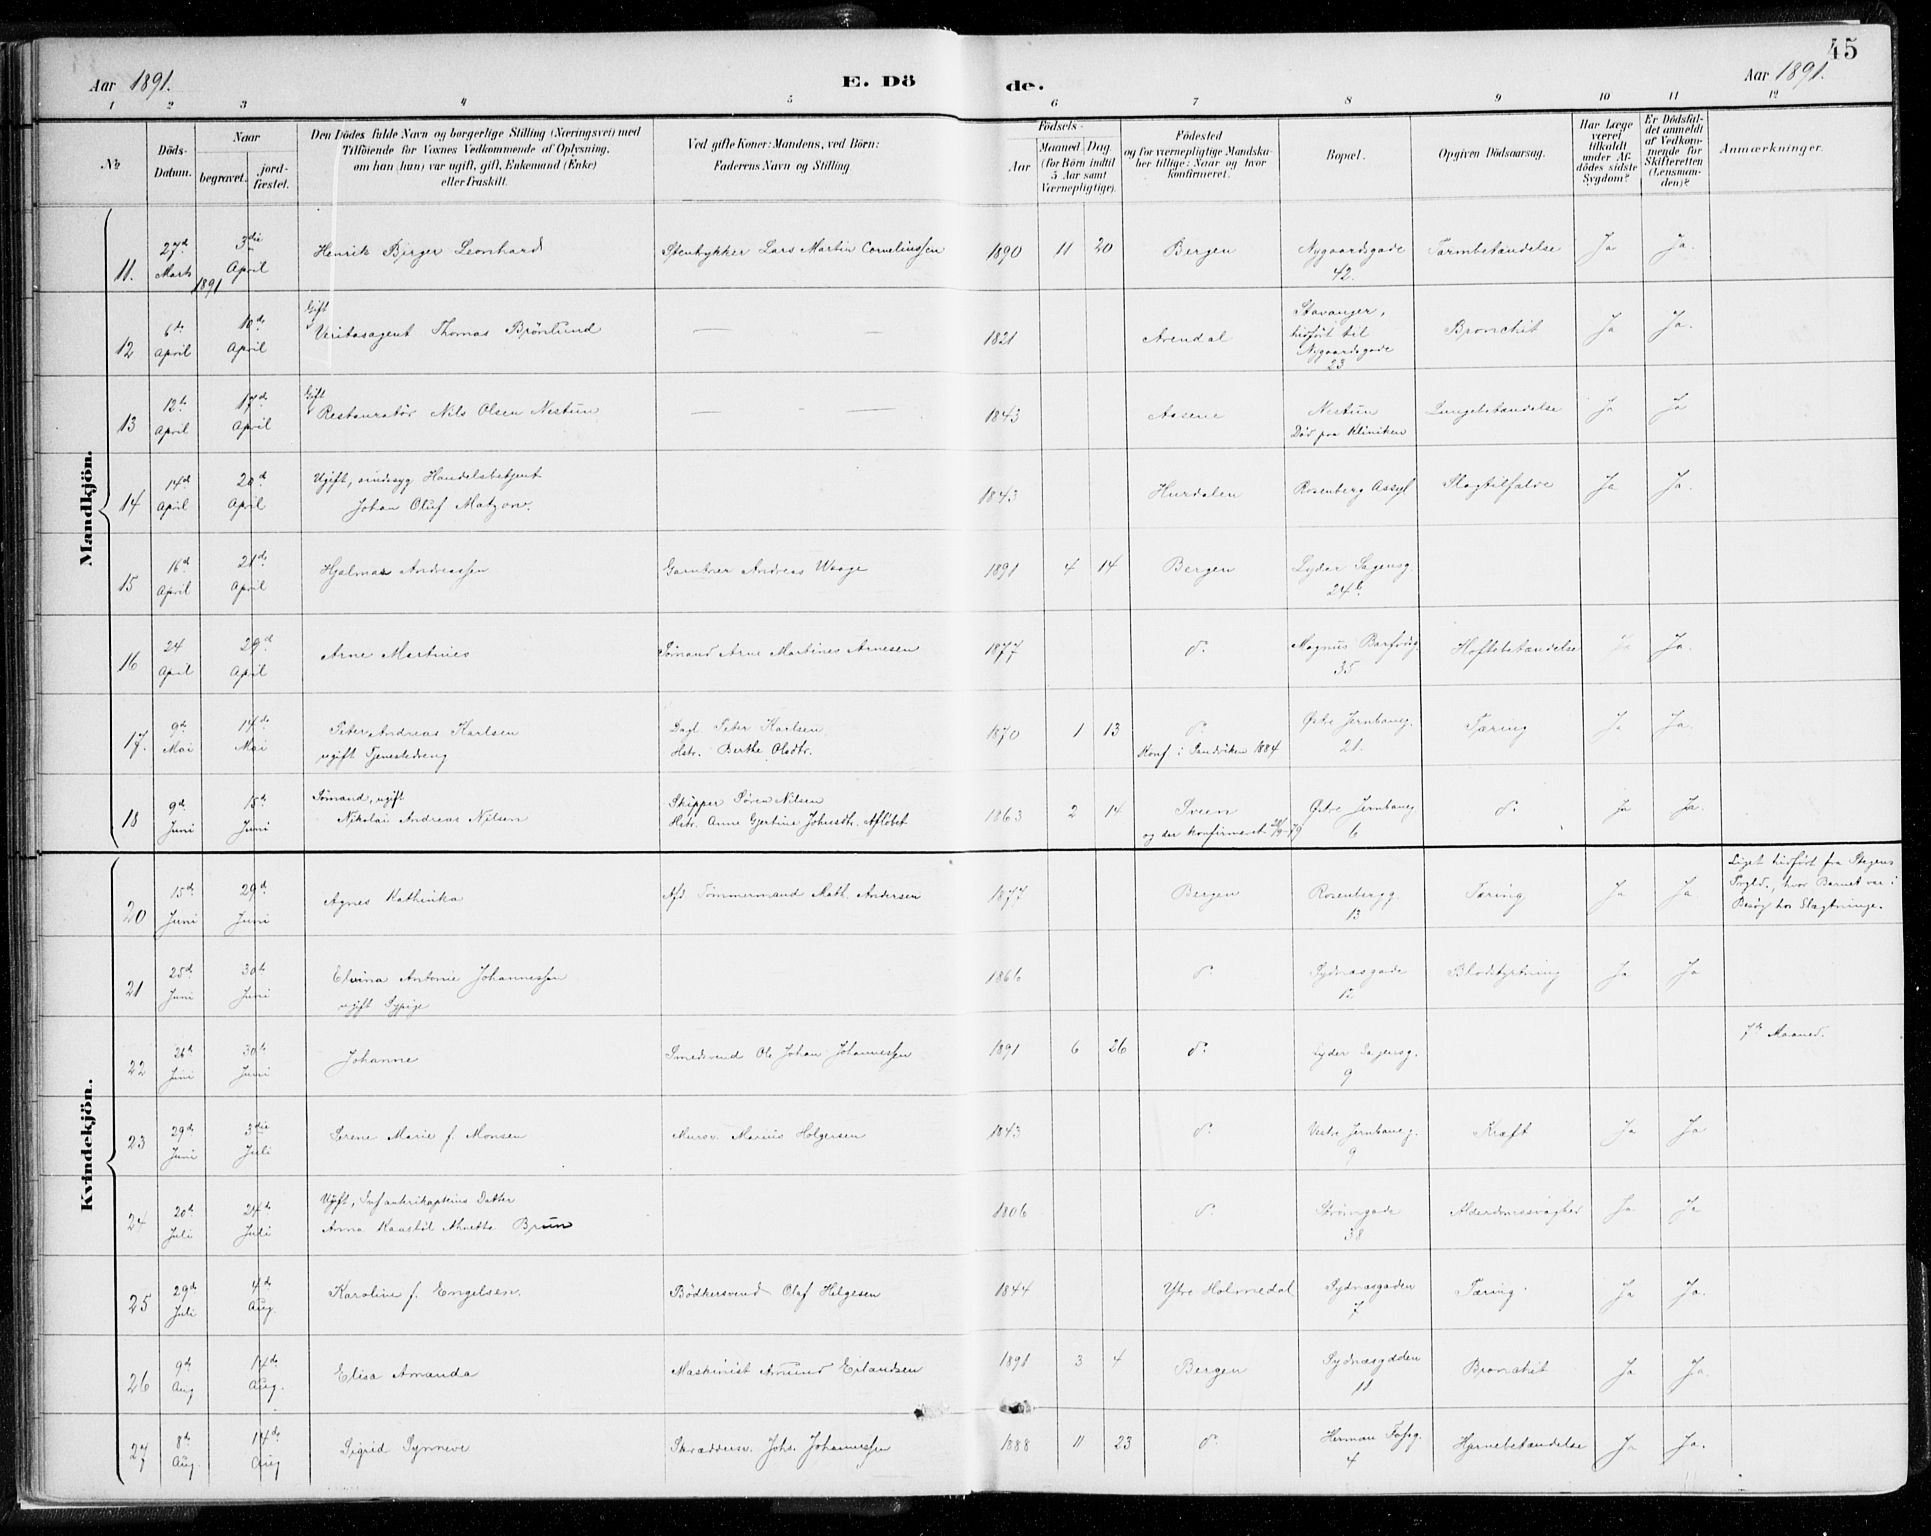 Aar 1891.
E. Dö
de.
45
Aar 1891.
1 2 3 4 5 6 7 8 9 10 11 12
№
Döds-
Datum.
Naar
begravet.
jord-
fæstet.
Den Dödes fulde Navn og borgerlige Stilling (Næringsvei) med
Tilföiende for Voxnes Vedkommende af Oplysning,
om han (hun) var ugift, gift, Enkemand (Enke)
eller fraskilt.
Ved gifte Koner: Mandens, ved Börn:
Faderens Navn og Stilling.
Födsels-
Aar
Maaned. Dag.
(for Börn indtil
5 Aar samt
Værnepligtige).
Födested
og for værnepligtige Mandska-
ber tillige: Naar og hvor
konfirmeret.
Bopæl.
Opgiven Dödsaarsag.
Har Læge
været
tilkaldt
under Af-
dödes sidste
Sygdom?
Er Dödsfal-
det anmeldt
af Vedkom-
mende for
Skifteretten
(Lensman-
den)?
Anmærkninger.
Mandkjön.
11. 27d Marts 1891 3die April Henrik Birger Leonhard Stenhykker Lars Martin Corneliussen 1890 11 20 Bergen Nygaardsgade 42. Tarmbetændelse Ja Ja.
12 6te April 10de April Gift Veritasagent Thomas Brönlund — — 1821 Arendal Stavanger, hidført til Nygaardsgade 23 Bronchit Ja Ja.
13 12te April 17de April Gift Restauratör Nils Olsen Nestun — — — 1843 Aasene Nestun Död paa Kliniken Lungebetændelse Ja Ja
14 14d April 20d April Ugift, sindssyg Handelsbetjent Johan Oluf Matzon. 1843 Hurdalen Rosenberg Assyl Slagtilfælde Ja Ja.
15 16d April 21de April Hjalmar Andreassen Gartner Andreas Waage 1891 4 14 Bergen Lyder Sagensg. 24b.
16 24 April 29d April Arne Martines Sømand Arne Martines Arnesen 1877 do Magnus Barfodsg. 35 Hoftebetændelse Ja Ja.
17. 9d Mai 14de Mai Peter Andreas Karlsen ugift Tjenestedreng Dagl. Peter Karlsen Hstr. Berthe Olsdtr. 1870 1 13 do Konf. i Sandviken 1884 Østre Jernbaneg. 21. Tæring Ja Ja.
18 9d Juni 15d Juni Sømand, ugift Nikolai Andreas Nilsen Skipper Søren Nilsen Hstr. Anne Gjertine Johnsdtr. Afløbet 1863 2 14 Sveen og der konfirmeret 79 Østre Jernbaneg 6 do Ja Ja.
Kvindekjön.
20 15d Juni 29d Juni Agnes Kathinka Afd Tømmermand Math. Andersen 1877 Bergen Rosenbergg. 13 Tæring Ja Ja Liget hidført fra Skogens Prgld., hvor Barnet var i Besøg hos Slægtninge.
21 25d Juni 30te Juni Elvina Antonie Johannessen ugift Sypige 1866 do Sydnæsgade 12 Blodstyrtning Ja Ja
22 26d Juni 30te Juni Johanne Smedsvend Ole Johan Johannessen 1891 6 26 do Lyder Sagensg. 9 7de Maaned.
23 29d Juni 3die Juli Serene Marie f. Monsen Mursv. Marius Holgersen 1843 do Vestre Jernbaneg. 9 Kræft Ja Ja
24 20de Juli 24de Juli Ugift, Infanterikapteins Datter Anna Brun 1806 do Strömgade 38 Alderdomssvaghed Ja Ja
25 29d Juli 4de Aug. Karoline f. Engelsen. Bødkersvend Olaf Helgesen 1844 Ytre Holmedal Sydnæsgaden 7 Tæring Ja Ja.
26 9d Aug 14de Aug. Elisa Amanda Maskinist Amund Erlandsen 1891 3 4 Bergen Sydnæsgaden 11 Bronchit Ja Ja.
27 8de Aug. 14de Aug Sigrid Synneve Skræddersv. Johs. Johannessen 1888 11 23 do Herman Fossg. 4 Hjernebetændelse Ja Ja.